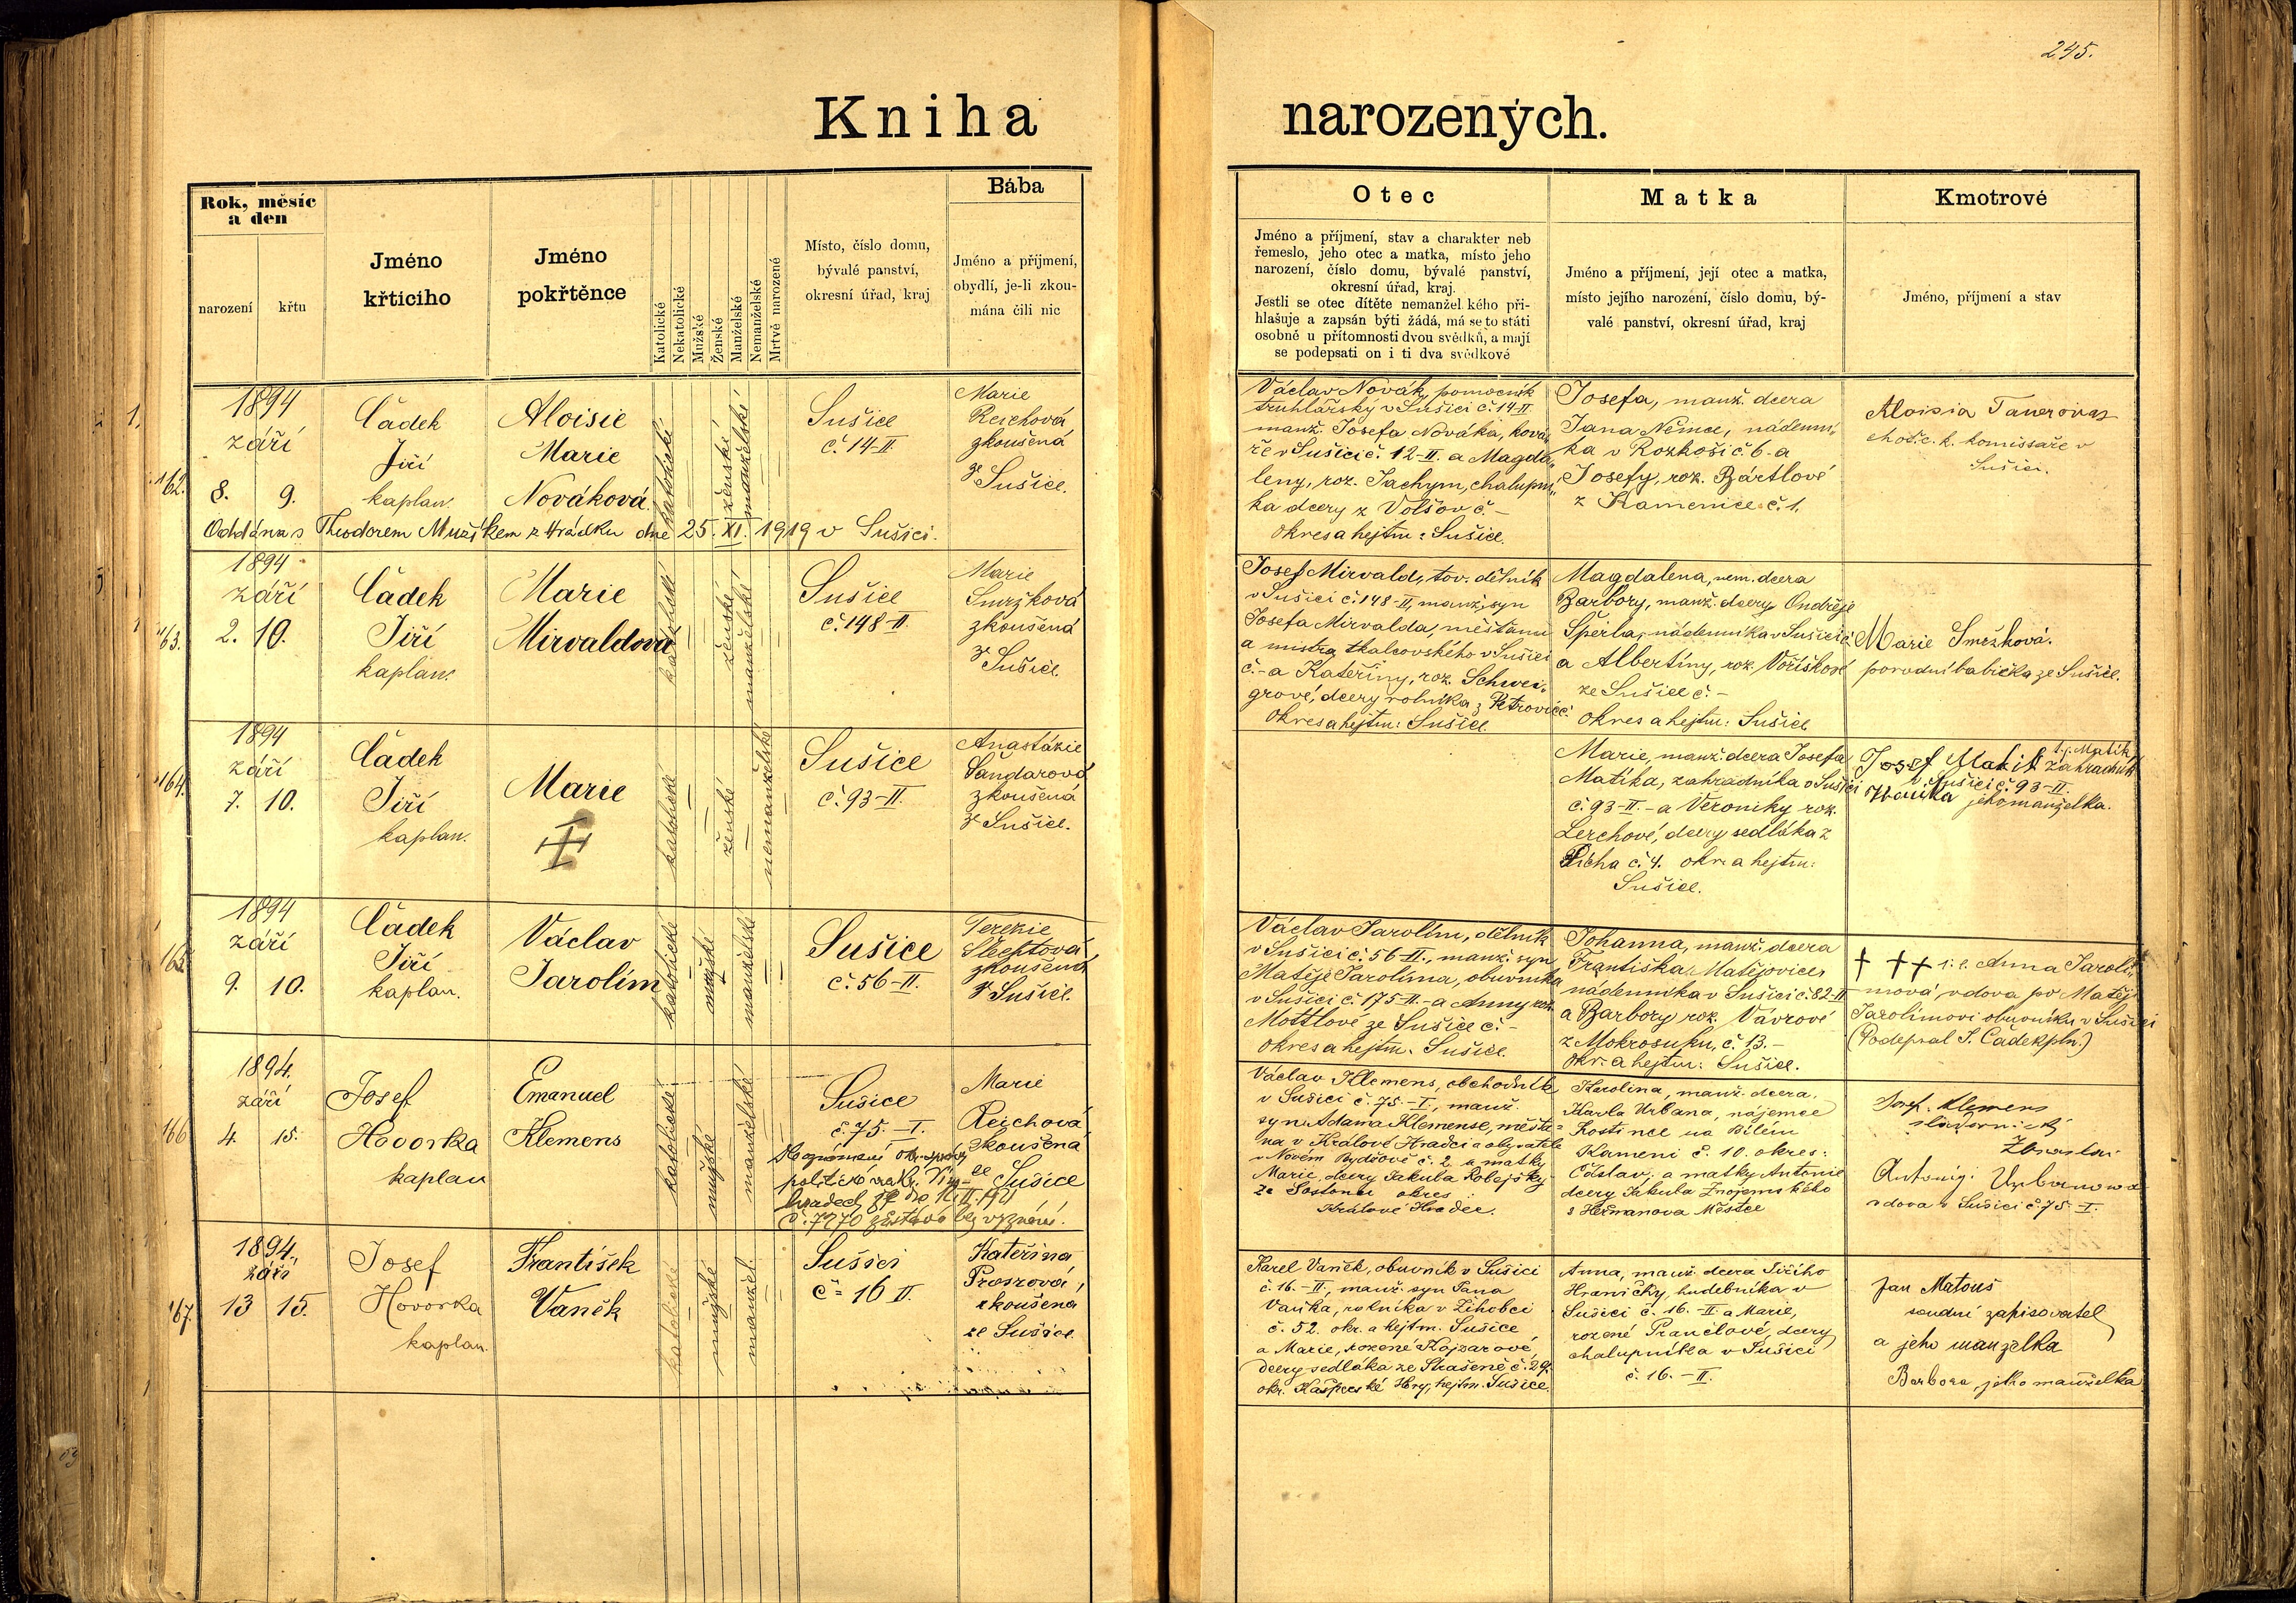 245.
Kniha narozených.
Rok, měsíc
a den
narození
křtu
Jméno
křticího
Jméno
pokřtěnce
Katolické
Nekatolické
Mužské
Ženské
Manželské
Nemanželské
Mrtvě narozené
Místo, číslo domu,
bývalé panství,
okresní úřad, kraj
Bába
Jméno a příjmení,
obydlí, je-li zkou-
mána čili nic
Otec
Jméno a příjmení, stav a charakter neb
řemeslo, jeho otec a matka, místo jeho
narození, číslo domu, bývalé panství,
okresní úřad, kraj.
Jestli se otec dítěte nemanžel kého při-
hlašuje a zapsán býti žádá, má se to státi
osobně u přítomnosti dvou svědků, a mají
se podepsati on i ti dva svědkové
Matka
Jméno a příjmení, její otec a matka,
místo jejího narození, číslo domu, bý-
valé panství, okresní úřad, kraj
Kmotrové
Jméno, příjmení a stav
162.
1894
září
8. 9.
Čádek
Jiří
kaplan.
Aloisie
Marie
Nováková.
katolické
ženské
manželské
Sušice
č. 14-II.
Marie
Reichová
zkoušená
ze
Sušice.
Oddána s Theodorem Mužíkem z Hrádku dne 25. XI. 1919 v Sušici.
Václav Novák, pomocník
truhlářský v Sušici č. 14-II.
manž. Josefa Nováka, ková„
ře v Sušici č. 12-II. a Magda„
leny, roz. Jachym, chalupní„
ka dcery z Volšov č. –
okres a hejtm: Sušice.
Josefa, manž. dcera
Jana Němce, nádenní„
ka v Rozkoši č. 6 - a
Josefy, roz. Bártlové
z Kamenice č. 1.
Aloisia Tauerova
choť c. k. komissaře v
Sušici.
163.
1894
září
2. 10.
Čádek
Jiří
kaplan.
Marie
Mirvaldová
katolické
ženské
manželské
Sušice
č. 148-II.
Marie
Smržková
zkoušená
ze
Sušice.
Josef Mirvald, tov. dělník
v Sušici č. 148-II, manž. syn
Josefa Mirvalda, měšťana
a mistra tkalcovského v Sušici
č. - a Kateřiny, roz. Schwei„
grové, dcery rolníka z Petrovic č.
Okres a hejtm: Sušice.
Magdalena, nem. dcera
Barbory, manž. dcery Ondřeje
Šperla, nádenníka v Sušici č.
a Albertiny, roz. Voříškové
ze Sušice č. –
okres a hejtm: Sušice
Marie Smržková.
porodní babička ze Sušice.
164.
1894
září
7. 10.
Čádek
Jiří
kaplan.
Marie
katolické
ženské
nemanželské
Sušice
č. 93-II.
Anastázie
Šandarová
zkoušená
ze Sušice.
Marie, manž. dcera Josefa
Matíka, zahradníka v Sušici
č. 93-II. - a Veroniky roz.
Lerchové, dcery sedláka z
Řícha č. 4. okr. a hejtm:
Sušice.
t. j. Matík
Josef Makit zahradník
v Sušici č. 93-II.
jeho manželka.
165.
1894
září
9. 10.
Čádek
Jiří
kaplan.
Václav
Jarolím
katolické
mužské
manželské
Sušice
č. 56-II.
Terezie
Šlechtová
zkoušená
z Sušice.
Václav Jarolím, dělník
v Sušici č. 56-II., manž. syn
Matěje Jarolíma, obuvníka
v Sušici č. 175-II. - a Anny roz.
Mottlové ze Sušice č. –
okres a hejtm. Sušice.
Johanna, manž. dcera
Františka Matějovice,
nádenníka v Sušici č. 82-II
a Barbory roz. Vávrové
z Mokrosuku, č. 13. –
okr. a hejtm: Sušice.
† †† i. e. Anna Jarolí„
mová vdova po Matěji
Jarolímovi obuvníku v Sušici
(Podepsal J. Čádek pln.)
166
1894.
září
4. 15.
Josef
Hovorka
kaplan
Emanuel
Klemens
katolické
mužské
manželské
Sušice
č. 75. – I.
Marie
Reichová
zkoušená
ze
Sušice
politické
č. 7270 zůstává bez vyznání.
Václav Klemens, obchodník
v Sušici č. 75. – I., manž.
syn Adama Klemense, měšťa=
na v Králové Hradci a obyvatele
v Novém Bydžově č. 2. a matky
Marie, dcery Jakuba
okres
Králové Hradec.
Karolina, manž. dcera
Karla Urbana, nájemce
hostince na Bílém
Kameni č. 10. okres:
Čáslav, a matky Antonie
dcery Jakuba Znojemského
z Heřmanova Městce
Josef Klemens
Antonij: Urbanowa
vdova v Sušici č. 75. – I.
167.
1894.
září
13 15.
Josef
Hovorka
kaplan.
František
Vaněk
katolické
mužské
manžel.
Sušici
č = 16 II.
Kateřina
zkoušená
ze Sušice.
Karel Vaněk, obuvník v Sušici
č. 16. – II, manž. syn Jana
Vaňka, rolníka v Žihobci
č. 52. okr. a hejtm. Sušice
a Marie, rozené Kojzarové,
dcery sedláka ze Strašeně č. 29.
okr. Kašperské Hory, hejtm. Sušice.
Anna, manž. dcera Jiřího
Hraničky, hudebníka v
Sušici č. 16. – II. a Marie,
rozené Prančlové, dcery
chalupníka v Sušici
č. 16. – II.
Jan Matouš
soudní zapisovatel
a jeho manželka
Barbora, jeho manželka